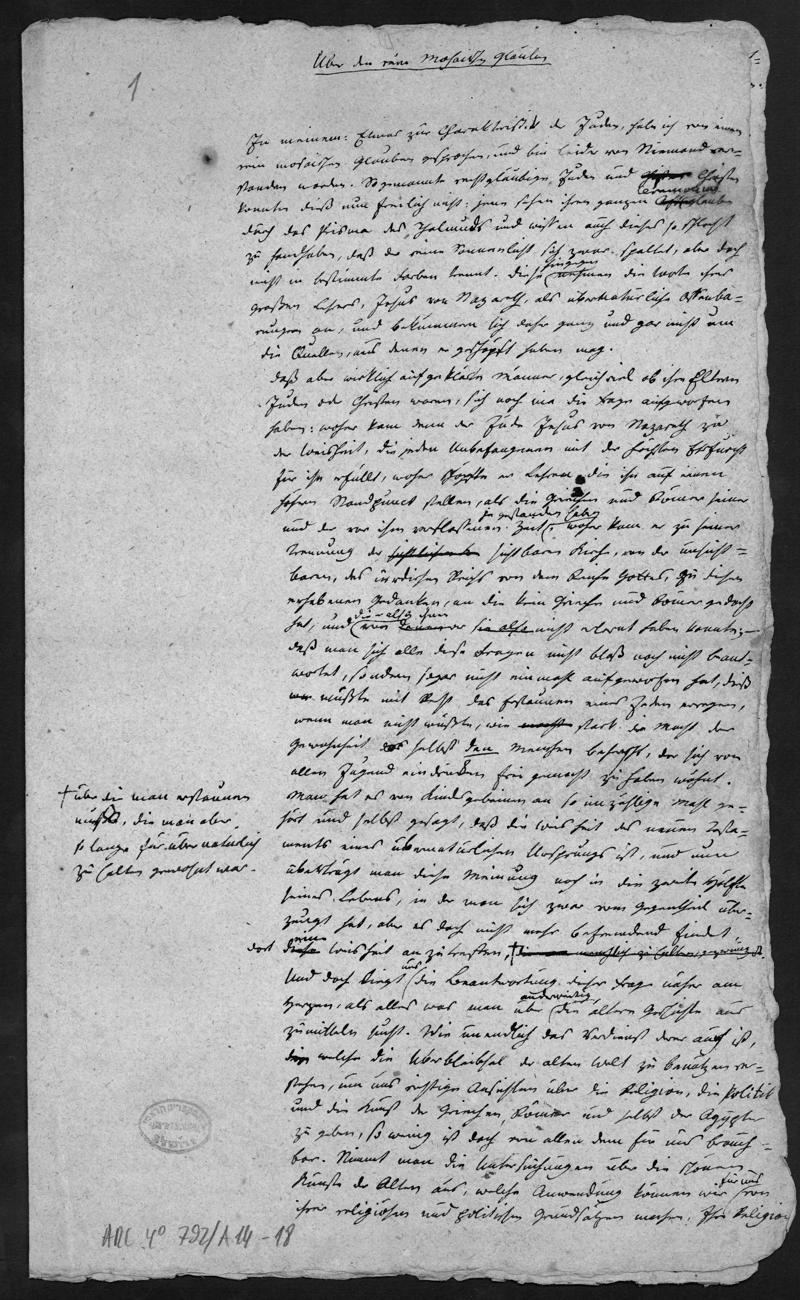 Über den rein Mosaischen Glauben
1
In meinem: Etwas zur Charakteristik der Juden, habe ich von einem
rein mosaischen Glauben gesprochen, und bin leider von Niemand ver-
standen worden. Sogenannte rechtgläubige Juden und Christen
konnten dieß nun freilich nicht: jene sehen ihren ganzen Ceremonial
durch das Prisma des Thalmuds und wissen auch dieses so schlecht
zu handhaben, daß der reine Sonnenlicht sich zwar spaltet, aber doch
nicht in bestimmte Farben trennt. Diese hingegen nehmen die Worte ihres
großen Lehrers, Jesus von Nazareth, als übernatürliche Offenba-
rungen an, und bekümmern sich daher ganz und gar nicht um
die Quellen, aus denen er geschöpft haben mag.
Daß aber wirklich aufgeklärte Männer, gleichviel ob ihre Eltern
Juden oder Christen waren, sich noch nie die Frage aufgeworfen
haben: woher kam denn der Jude Jesus von Nazareth zu
der Weisheit, die jeden Unbefangenen mit der höchsten Ehrfurcht
für ihn erfüllt, woher schöpfte er Lehren, die ihn auf einen
höhern Standpunct stellen, als die Griechen und Römer seiner
und der vor ihm verflossenen Zeit gestanden haben, woher kam er zu seiner
Trennung der sichtbaren Kirche, von der unsicht-
baren, des irrdischen Reichs von dem Reiche Gottes, zu diesen
erhabenen Gedanken, an die kein Grieche und Römer gedacht
hat, und die er also von ihnen nicht erlernt haben konnte; –
daß man sich alle diese Fragen nicht bloß noch nicht beant-
wortet, sondern sogar nicht einmahl aufgeworfen hat, dieß
müßte mit Recht das Erstaunen eines Jeden erregen,
wenn man nicht wüßte, wie stark die Macht der
Gewohnheit selbst den Menschen beherrscht, der sich von
allen Jugendeindrücken frei gemacht zu haben wähnt.
Man hat es von Kindsbeinen an so unzählige Mahl ge-
hört und selbst gesagt, daß die Weisheit des neuen Testa-
ments eines übernatürlichen Ursprungs ist, und nun
überträgt man diese Meinung noch in die zweite Hälfte
seines Lebens, in der man sich zwar vom Gegentheil über-
zeugt hat, aber es doch nicht mehr befremdend findet
dort eine Weisheit anzutreffen, †
† über die man erstaunen
müßte, die man aber
so lange für übernatürlich
zu halten gewohnt war.
Und doch liegt uns die Beantwortung dieser Frage näher am
Herzen, als alles was man anderweitig über die ältere Geschichte aus
zumitteln sucht. Wie unendlich das Verdienst derer auch ist,
welche die Überbleibsel der alten Welt zu benutzen ver-
stehen, um uns richtige Ansichten über die Religion, die Politik
und die Kunst der Griechen, Römer und selbst der Ägypter
zu geben, so wenig ist doch von allen dem für uns brauch-
bar. Nimmt man die Untersuchungen über die schönen
Künste der Alten aus, welche Anwendung können wir für uns von
ihren religiösen und politischen Grundsätzen machen. Ihre Religion
ARC 4° 792/A14-18